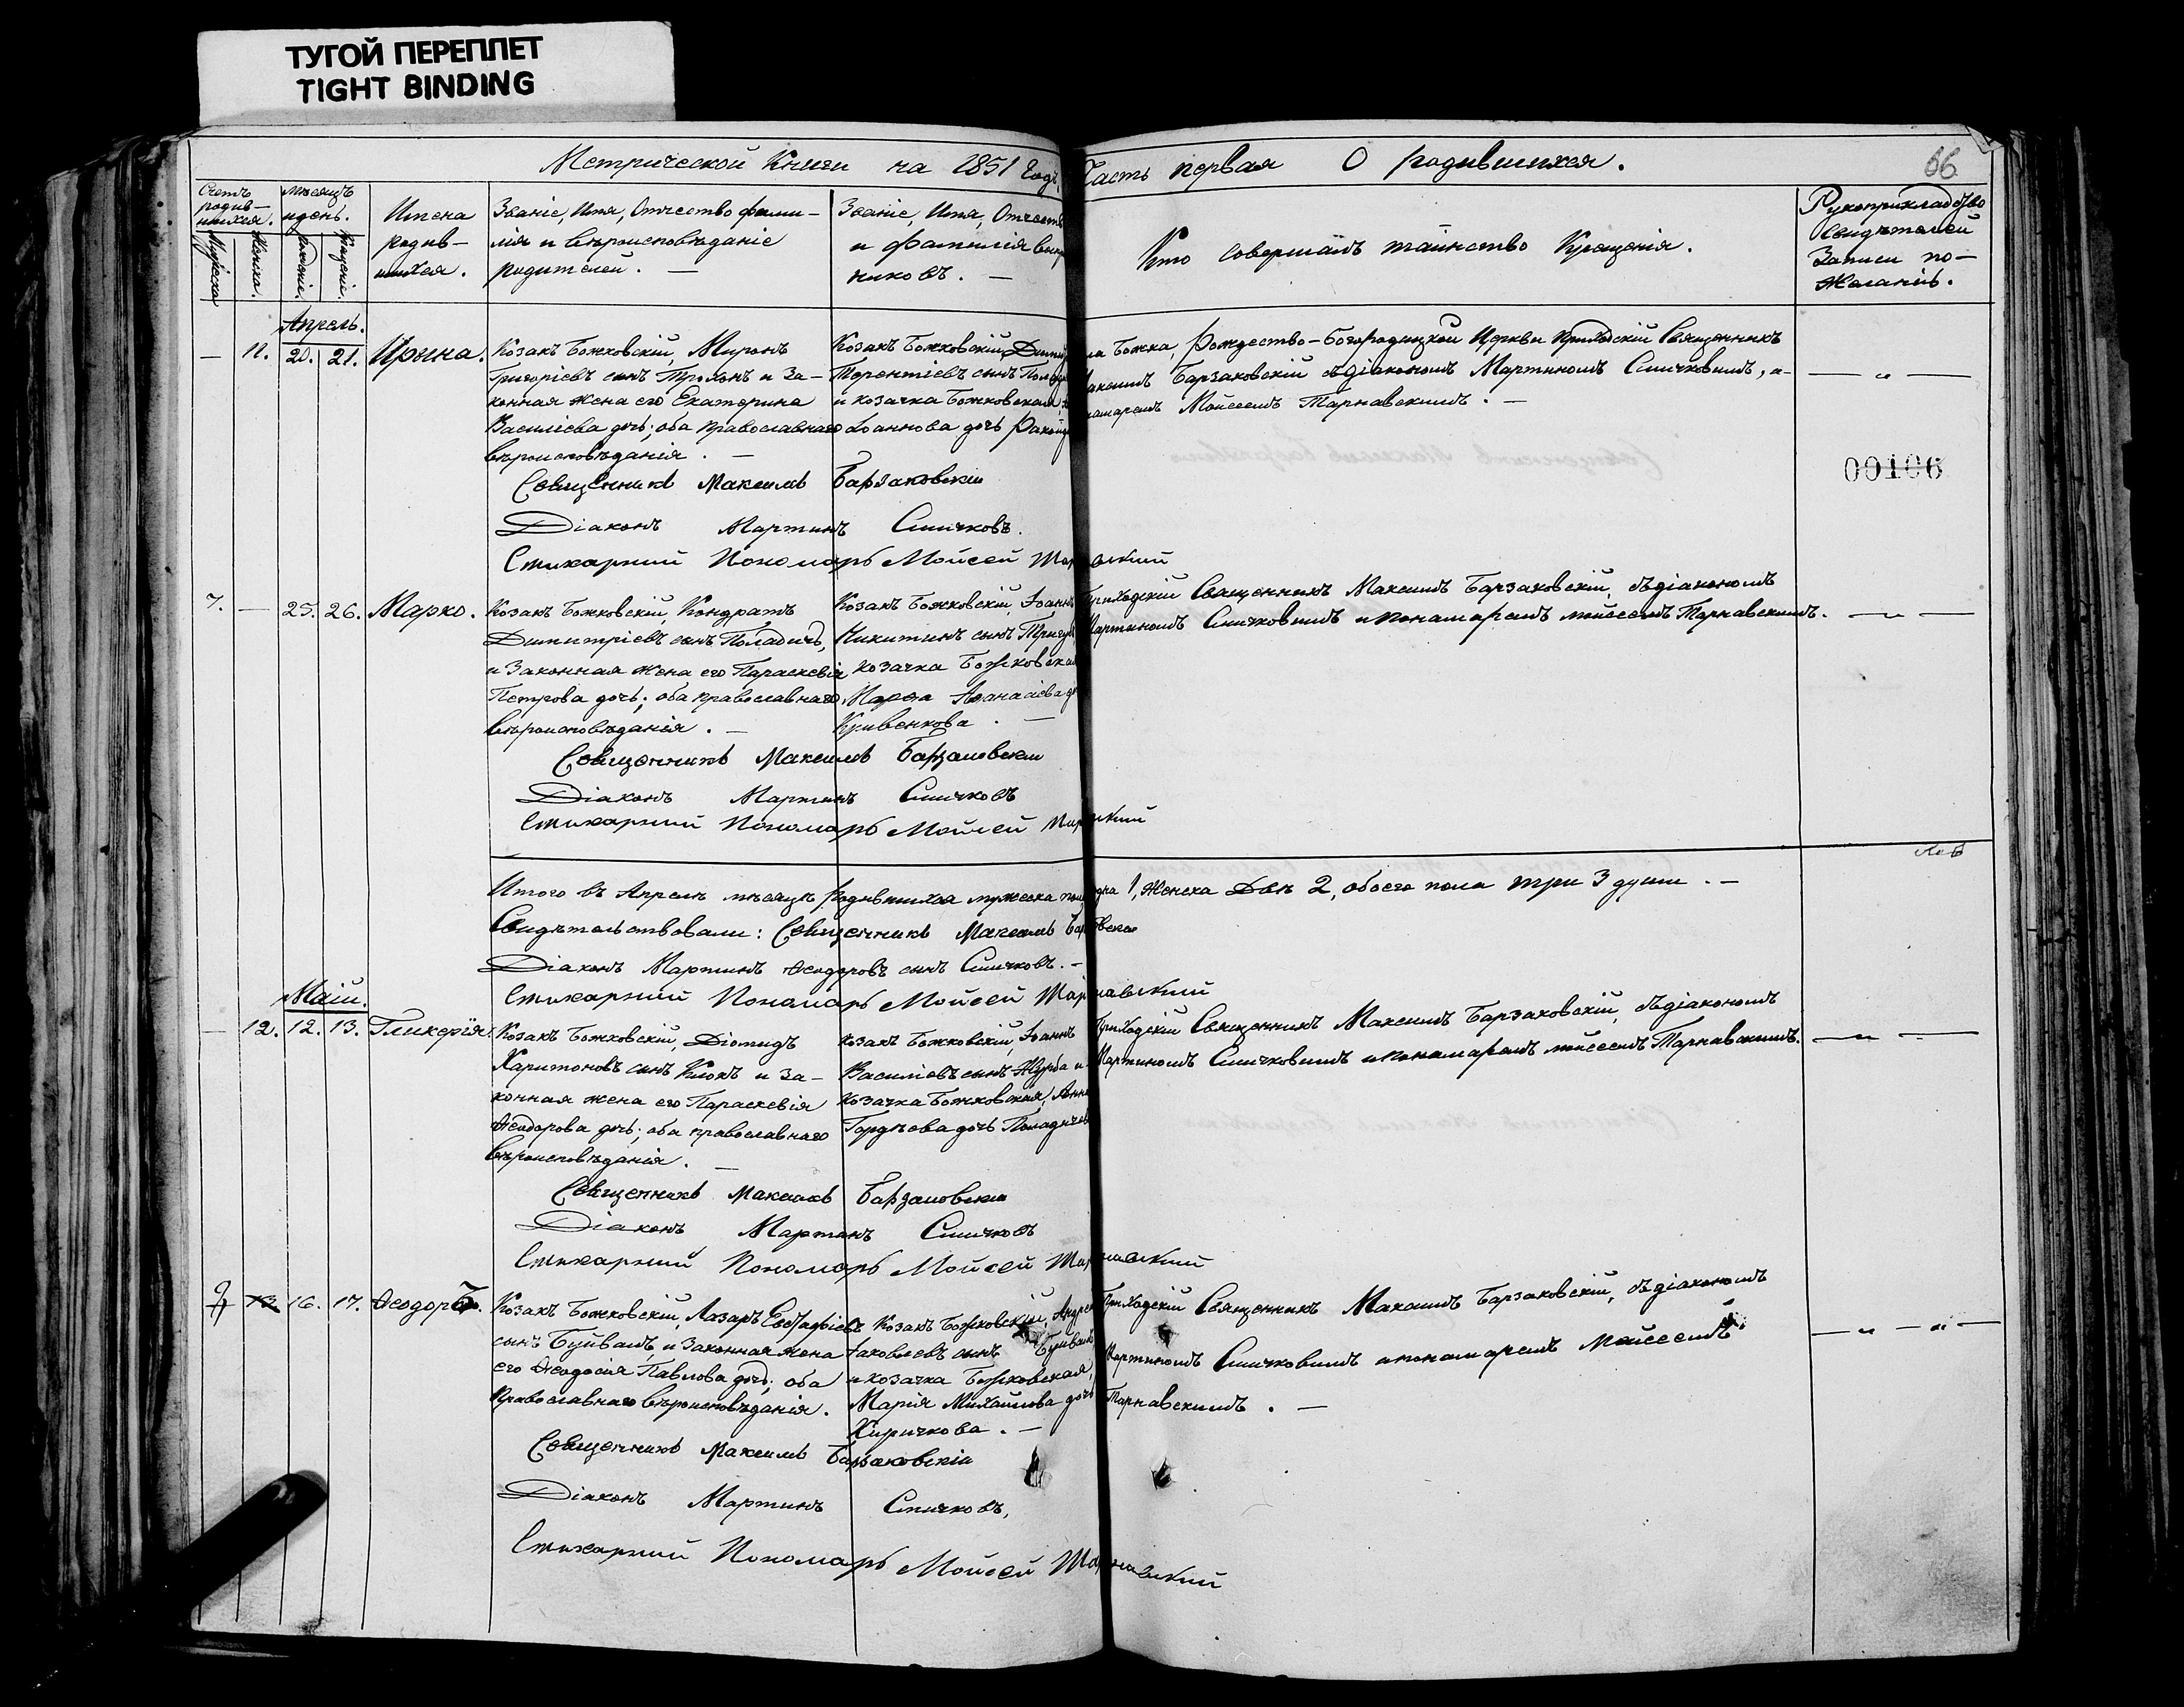 ТУГОЙ ПЕРЕПЛЕТ
TIGHT BINDING
Метрической Книги на 1851 Годъ, Часть первая О родившихся.
66
Счетъ родив-шихся.
Мужеска
Женска.
Мѣсяцъ и день.
Рожденіе.
Крещеніе.
Имена родив-шихся.
Званіе, Имя, Отчество фами-
лія и вѣроисповѣданіе
родителей. —
Званіе, Имя, Отчеств
и фамилія
никовъ. —
Кто совершалъ таинство Крещенія.
Рукоприкладство
свидѣтелей
Записи по-
желанію.
Апрель.
— 11. 20. 21. Ирина.
Козакъ Божковскій, Миронъ
Григоріевъ сынъ Трохонъ и За-
конная жена его Екатерина
Василіева дочь; оба православнаго
вѣроисповѣданія. —
Козакъ Божковскій
Терентіевъ сынъ
и козачка Божковская
Іоаннова дочь
Божка, Рождество-Богородицкой Церкви Приходскій Священникъ
Максимъ Барзаковскій съ діакономъ Мартиномъ Спичковымъ, и-
Мойсеемъ Тарнавскимъ. —
— „ —
00106
Священникъ Максимъ Барзаковскій
Діаконъ Мартинъ Спичковъ.
Стихарний Пономарь Мойсей
7. — 25. 26. Марко.
Козакъ Божковскій, Кондратъ
Димитріевъ сынъ Поладичъ,
и Законная жена его Параскевія
Петрова дочь; оба православнаго
вѣроисповѣданія. —
Козакъ Божковскій, Іоаннъ
Никитинъ сынъ
козачка Божковская
Марѳа Аѳанасіева
Кривенкова. —
Приходскій Священникъ Максимъ Барзаковскій, съ діакономъ
Мартиномъ Спичковымъ и понамаремъ мойсеемъ Тарнавскимъ.
— „ —
Священникъ Максимъ Барзаковскій
Діаконъ Мартинъ Спичковъ
Стихарний Пономарь Мойсей
Итого въ Апрелѣ мѣсяцѣ родившихся мужеска одна 1, женска Двѣ 2, обоего пола три 3 души. —
Свидѣтельствовали: Священникъ Максимъ
Діаконъ Мартинъ Ѳеодоровъ сынъ Спичковъ. —
Стихарний Пономарь Мойсей Тарнавский
Май.
— 12. 12. 13. Гликерія.
Козакъ Божковскій, Діомидъ
Харитоновъ сынъ Клокъ и За-
конная жена его Параскевія
Ѳеодорова дочь; оба православнаго
вѣроисповѣданія. —
Козакъ Божковскій, Іоаннъ
Василіевъ сынъ Журба и
козачка Божковская, Анна
Гордѣева дочь
Приходскій Священникъ Максимъ Барзаковскій, съ діакономъ
Мартиномъ Спичковымъ и понамаремъ мойсеемъ Тарнавскимъ.
— „ —
Священникъ Максимъ Барзаковскій
Діаконъ Мартинъ Спичковъ
Стихарний Пономарь Мойсей Тарнавский
16. 17. Ѳеодоръ.
Козакъ Божковскій, Лазарь Евстафіевъ
сынъ Буйвалъ, и Законная жена
его Ѳеодосія Павлова дочь; оба
православнаго вѣроисповѣданія.
Козакъ Божковскій, Андрей
Іаковлевъ сынъ
и козачка Божковская,
Марія Михайлова дочь
Киричкова. —
Приходскій Священникъ Максимъ Барзаковскій, съ діакономъ
Мартиномъ Спичковымъ и понамаремъ Мойсеемъ
Тарнавскимъ. —
— „ — „ —
Священникъ Максимъ Барзаковскій
Діаконъ Мартинъ Спичковъ,
Стихарний Пономарь Мойсей Тарнавский